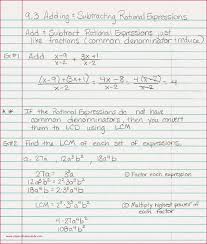 9.3 Adding & Subtracting Rational Expressions
Add & Subtract Rational Expressions just
like fractions (common denominator & reduce)
Ex#1 Add x-9/x-2 + 3x+1/x-2
(x-9)+(3x+1)/x-2 = 4x-8/x-2 = 4(x-2)/x-2 = 4
If the Rational Expressions do not have
common denominators, then you convert
them to LCD using LCM
Ex#2 Find the LCM of each set of expressions.
a. 27a 12a³b² 18a⁴b²
27a = 3³a
12a³b² = 2²·3a³b²
18a⁴b² = 2·3²a⁴b²
① Factor each expression
LCM = 2²·3³a⁴b²
4·27a⁴b²
108a⁴b²
② Multiply highest power of
each factor